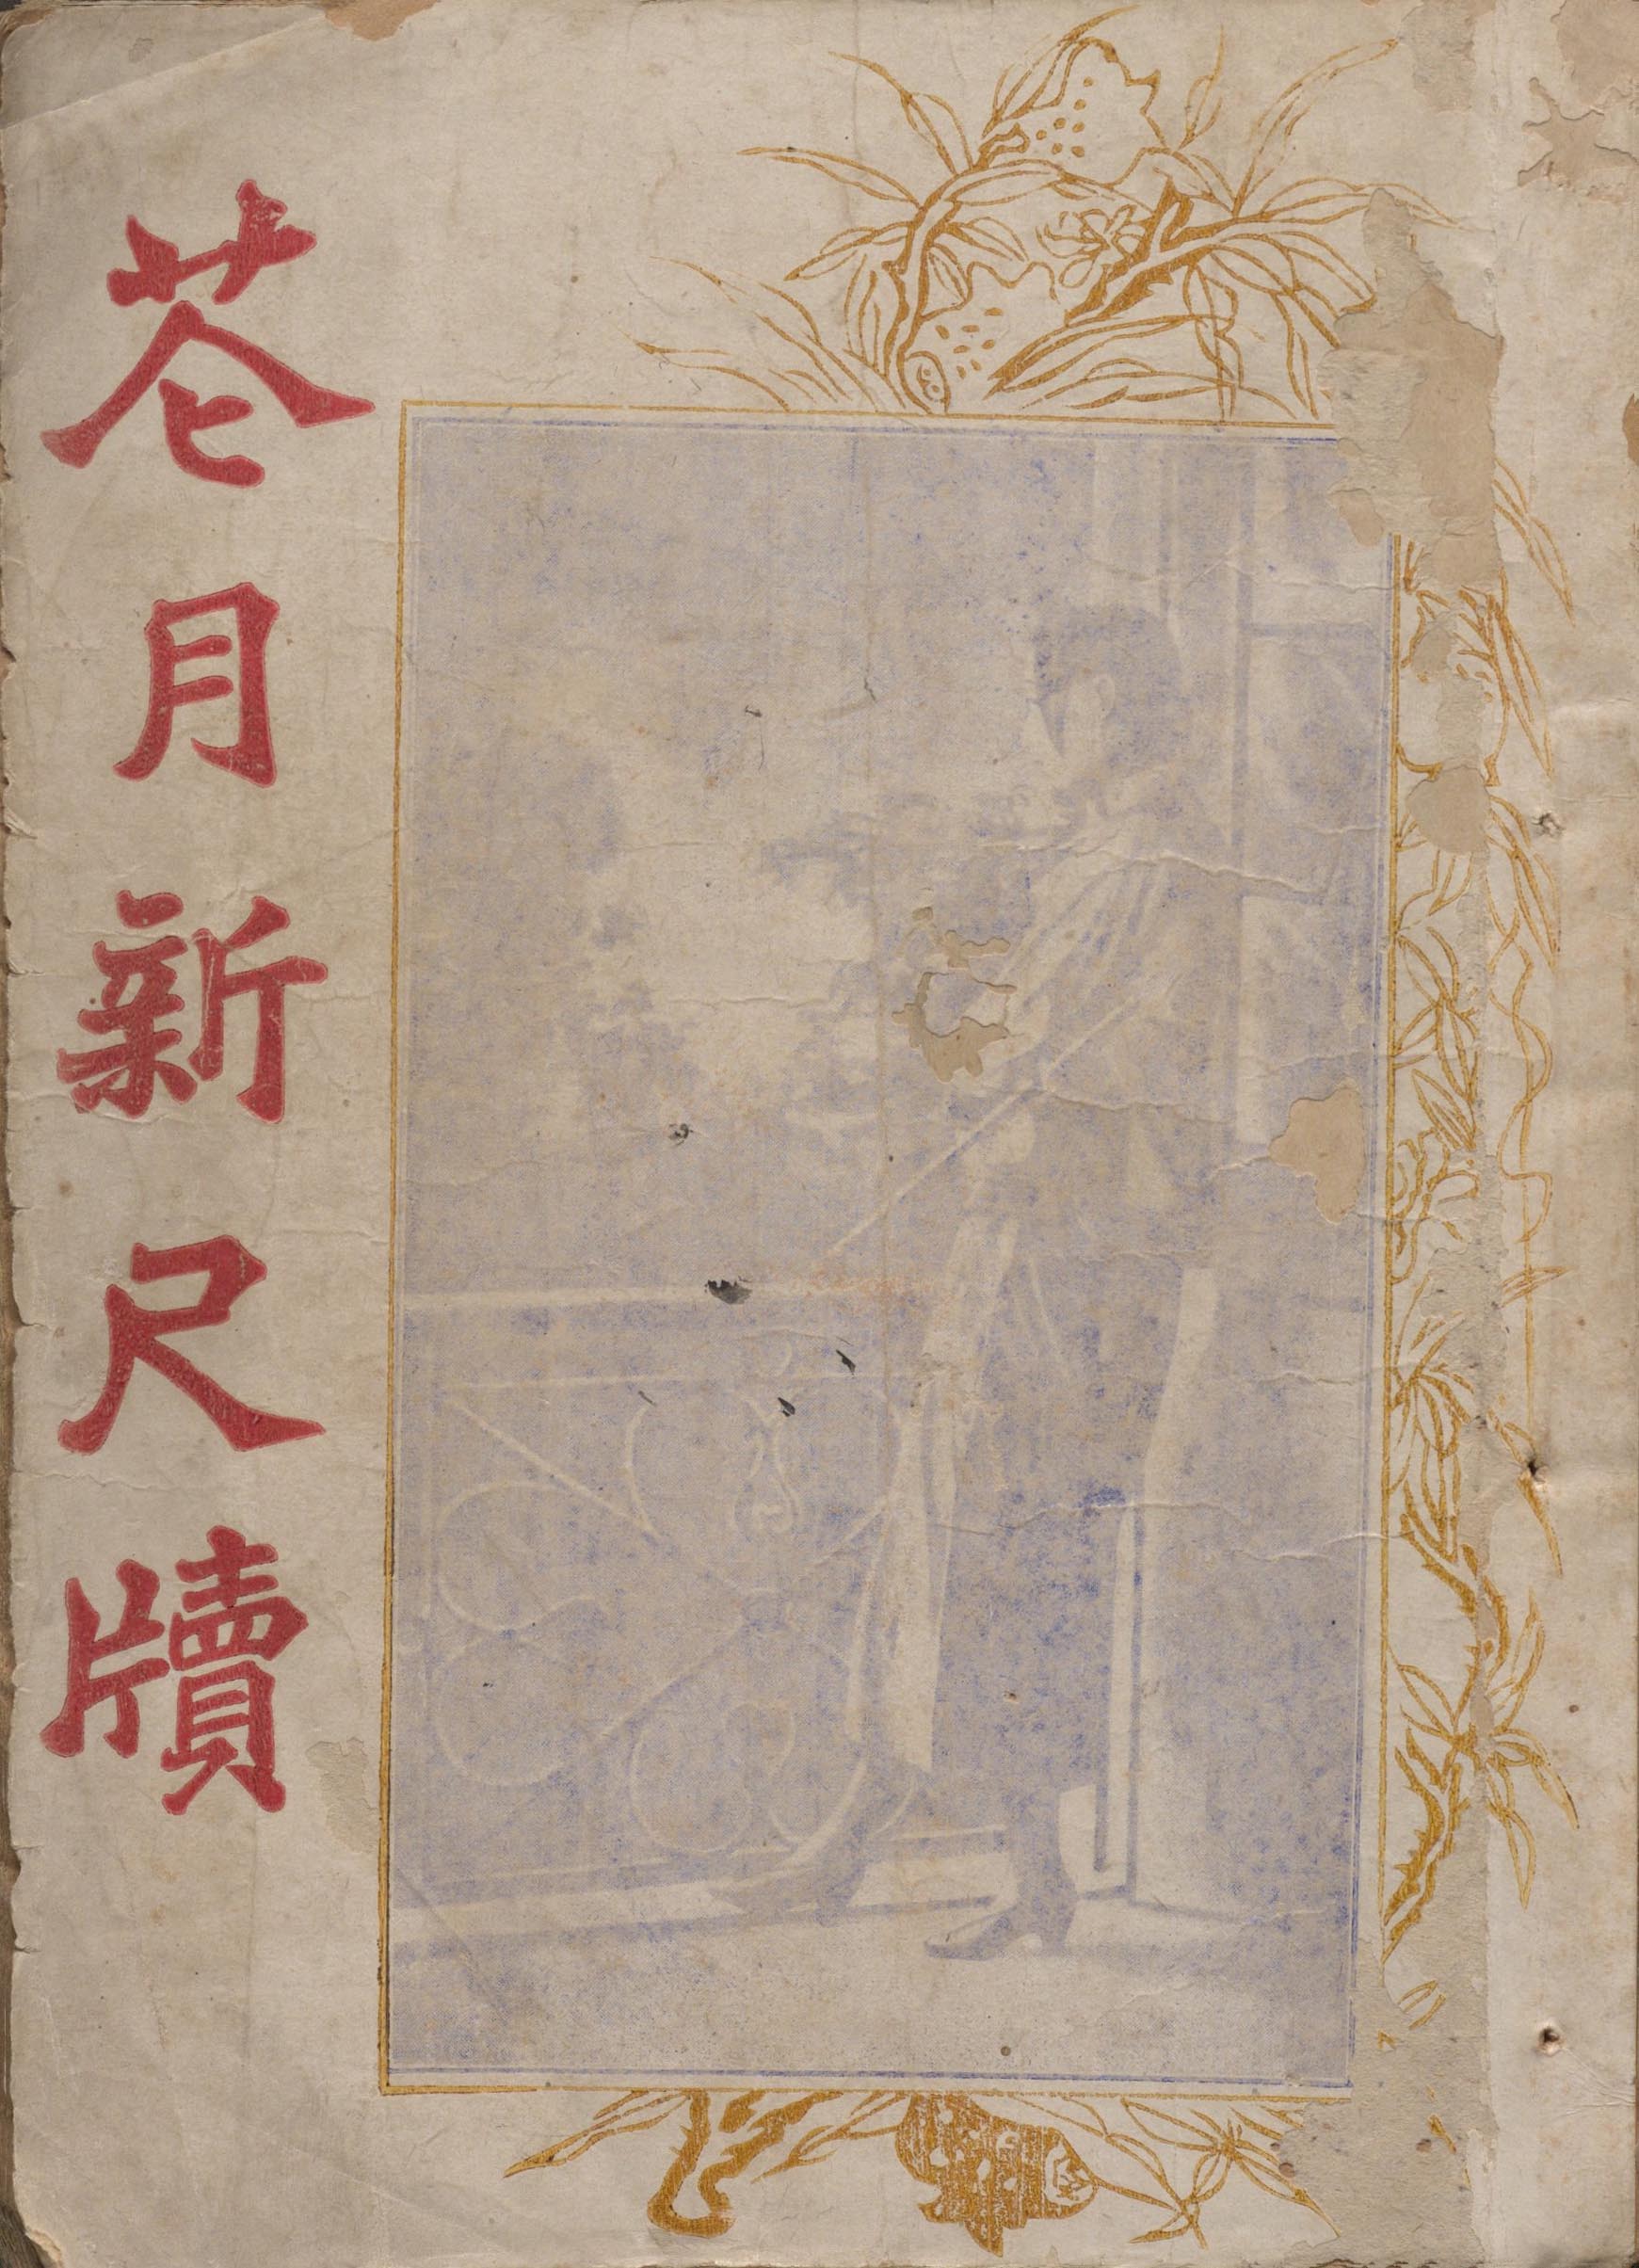 花月新尺牘